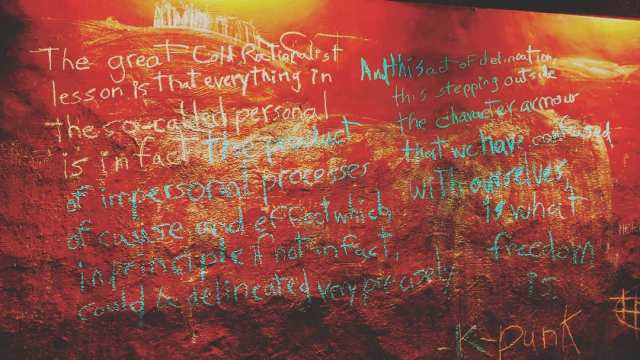 The great Cold Rationalist
lesson is that everything in
the so-called personal
is in fact the product
of impersonal processes
of cause and effect which,
in principle if not in fact,
could be delineated very precisely
And this act of delineation,
this stepping outside
the character armour
that we have confused
with ourselves,
is what
freedom
is
-K-punk
#